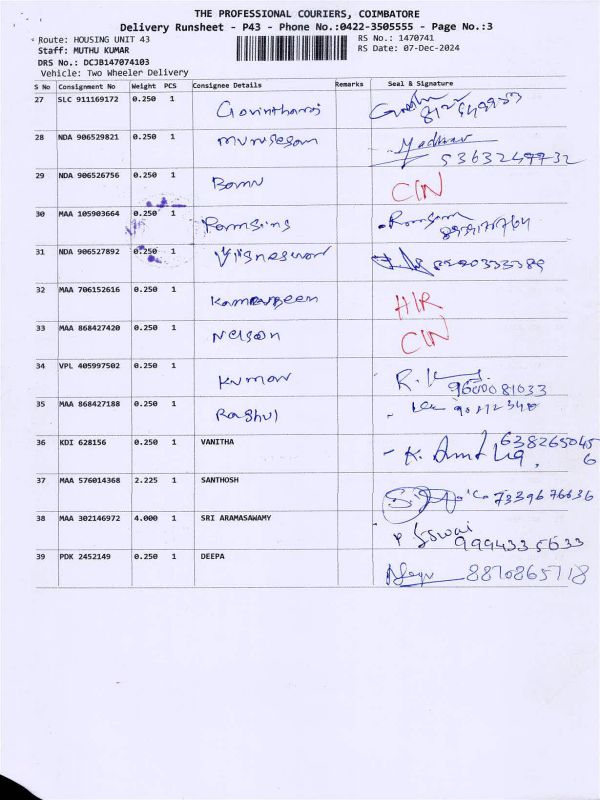 THE PROFESSIONAL COURIERS, COIMBATORE
Delivery Runsheet - P43 - Phone No.:0422-3505555 - Page No.:3
Route: HOUSING UNIT 43 RS No.: 1470741
Staff: MUTHU KUMAR RS Date: 07-Dec-2024
DRS No.: DCJB147074103
Vehicle: Two Wheeler Delivery
S No Consignment No Weight PCS Consignee Details Remarks Seal & Signature
27 SLC 911169172 0.250 1
28 NDA 906529821 0.250 1 Murugesan Madhav 5363249732
29 NDA 906526756 0.250 1 CIN
30 MAA 105903664 0.250 1 Ramsing
31 NDA 906527892 0.250 1
32 MAA 706152616 0.250 1
33 MAA 868427420 0.250 1 Nelson CIN
34 VPL 405997502 0.250 1 Kumar 9600081033
35 MAA 868427188 0.250 1 Raghul
36 KDI 628156 0.250 1 VANITHA 6382650456
37 MAA 576014368 2.225 1 SANTHOSH 7339676636
38 MAA 302146972 4.000 1 SRI ARAMASAWAMY 9994335633
39 PDK 2452149 0.250 1 DEEPA 8870865718